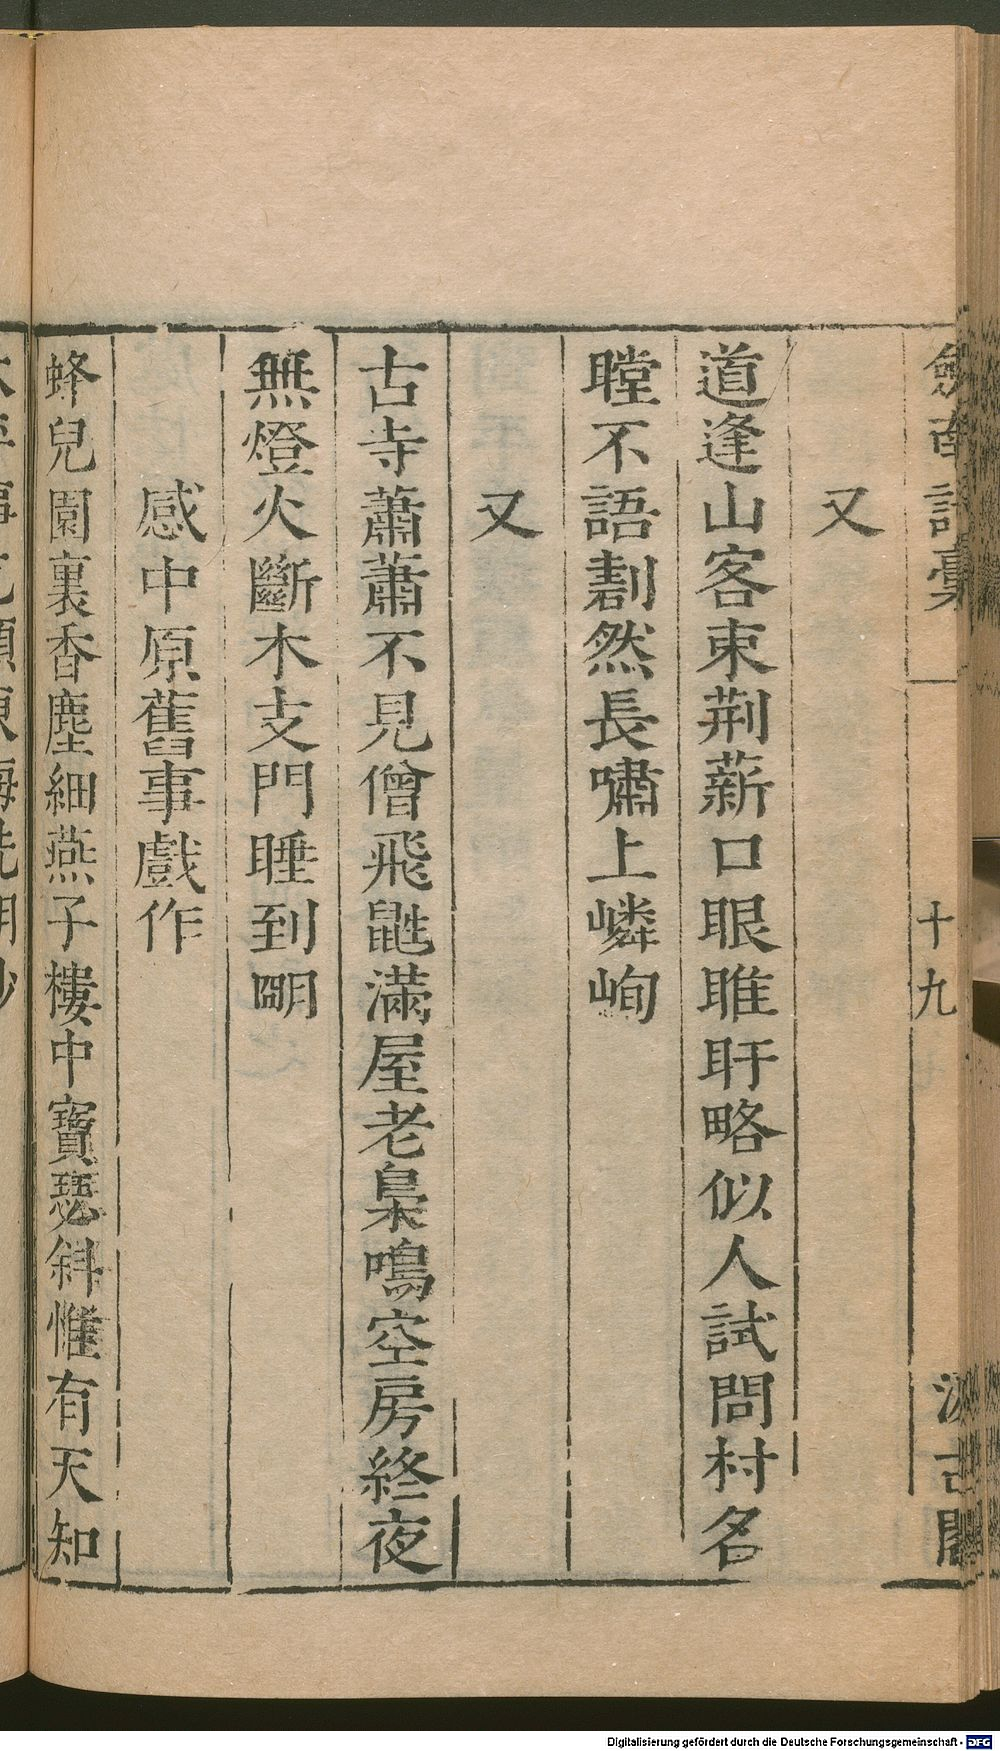 劍南詩稾
十九
汲古閣
又
道逢山客束荆薪口眼睢盱略似人試問村名
瞠不語劃然長嘯上嶙峋
又
古寺蕭蕭不見僧飛鼪滿屋老梟鳴空房終夜
無燈火斷木支門睡到明
感中原舊事戲作
蜂兒園裏香塵細燕子樓中寶瑟斜惟有天知
Digitalisierung gefördert durch die Deutsche Forschungsgemeinschaft - DFG